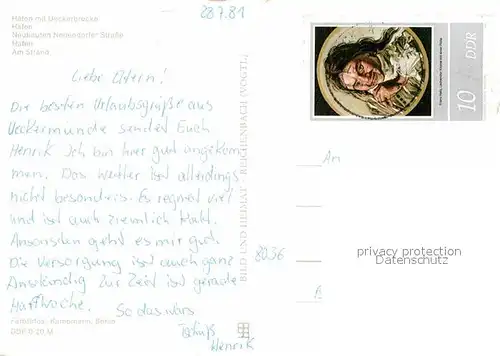 Hafen mit Ueckerbrücke
Hafen
Neubauten Neuendorfer Straße
Hafen
Am Strand
28.7.81
Liebe Eltern!
Die besten Urlaubsgrüße aus
Ueckermünde sendet Euch
Henrik. Ich bin hier gut angekom
men. Das Wetter ist allerdings
nicht besonders. Es regnet viel
und ist auch ziemlich kalt.
Ansonsten geht es mir gut.
Die Versorgung ist auch ganz
Anständig Zur Zeit ist gerade
Haffwoche.
So das wärs
Tschüß
Henrik
Farbfotos: Kampmann, Berlin
DDR 0,20 M
BILD UND HEIMAT REICHENBACH (VOGTL)
10 DDR
An
8036
privacy protection
Datenschutz